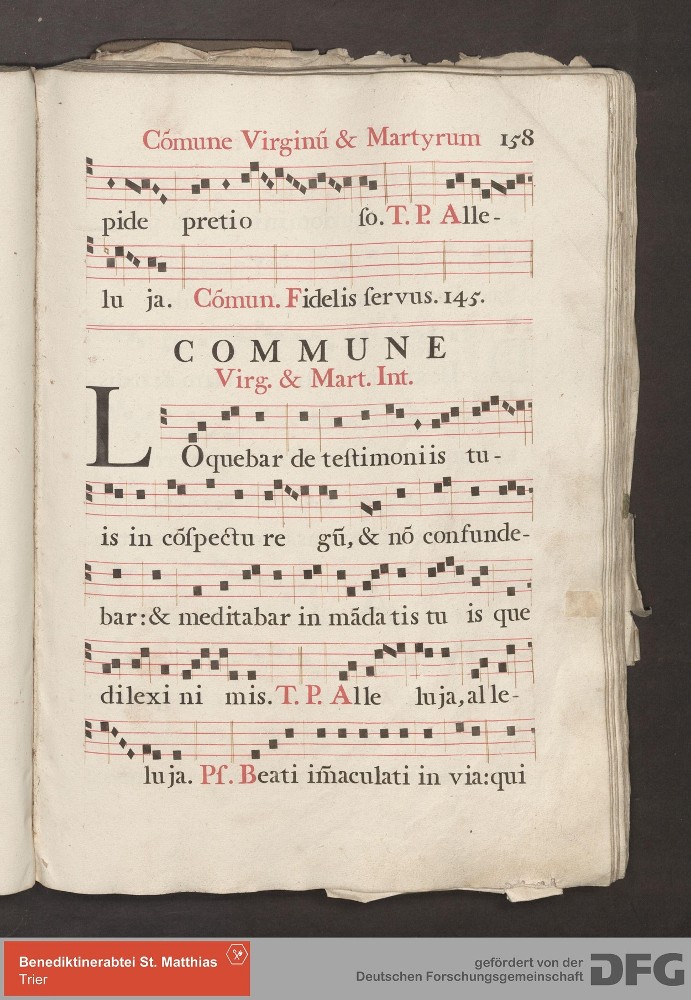 Cõmune Virginũ & Martyrum 158
pide pretio ſo. T. P. Alle-
lu ja. Cõmun. Fidelis ſervus. 145.
COMMUNE
Virg. & Mart. Int.
LOquebar de teſtimoniis tu-
is in cõſpectu re gũ, & nõ confunde-
bar: & meditabar in mãda tis tu is que
dilexi ni mis. T. P. Alle luja, alle-
luja. Pſ. Beati im̃aculati in via: qui
Benediktinerabtei St. Matthias
Trier
gefördert von der
Deutschen Forschungsgemeinschaft DFG